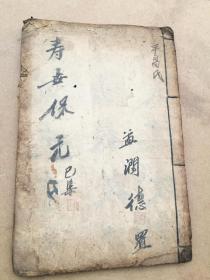 寿世保元
巳集
益润德置